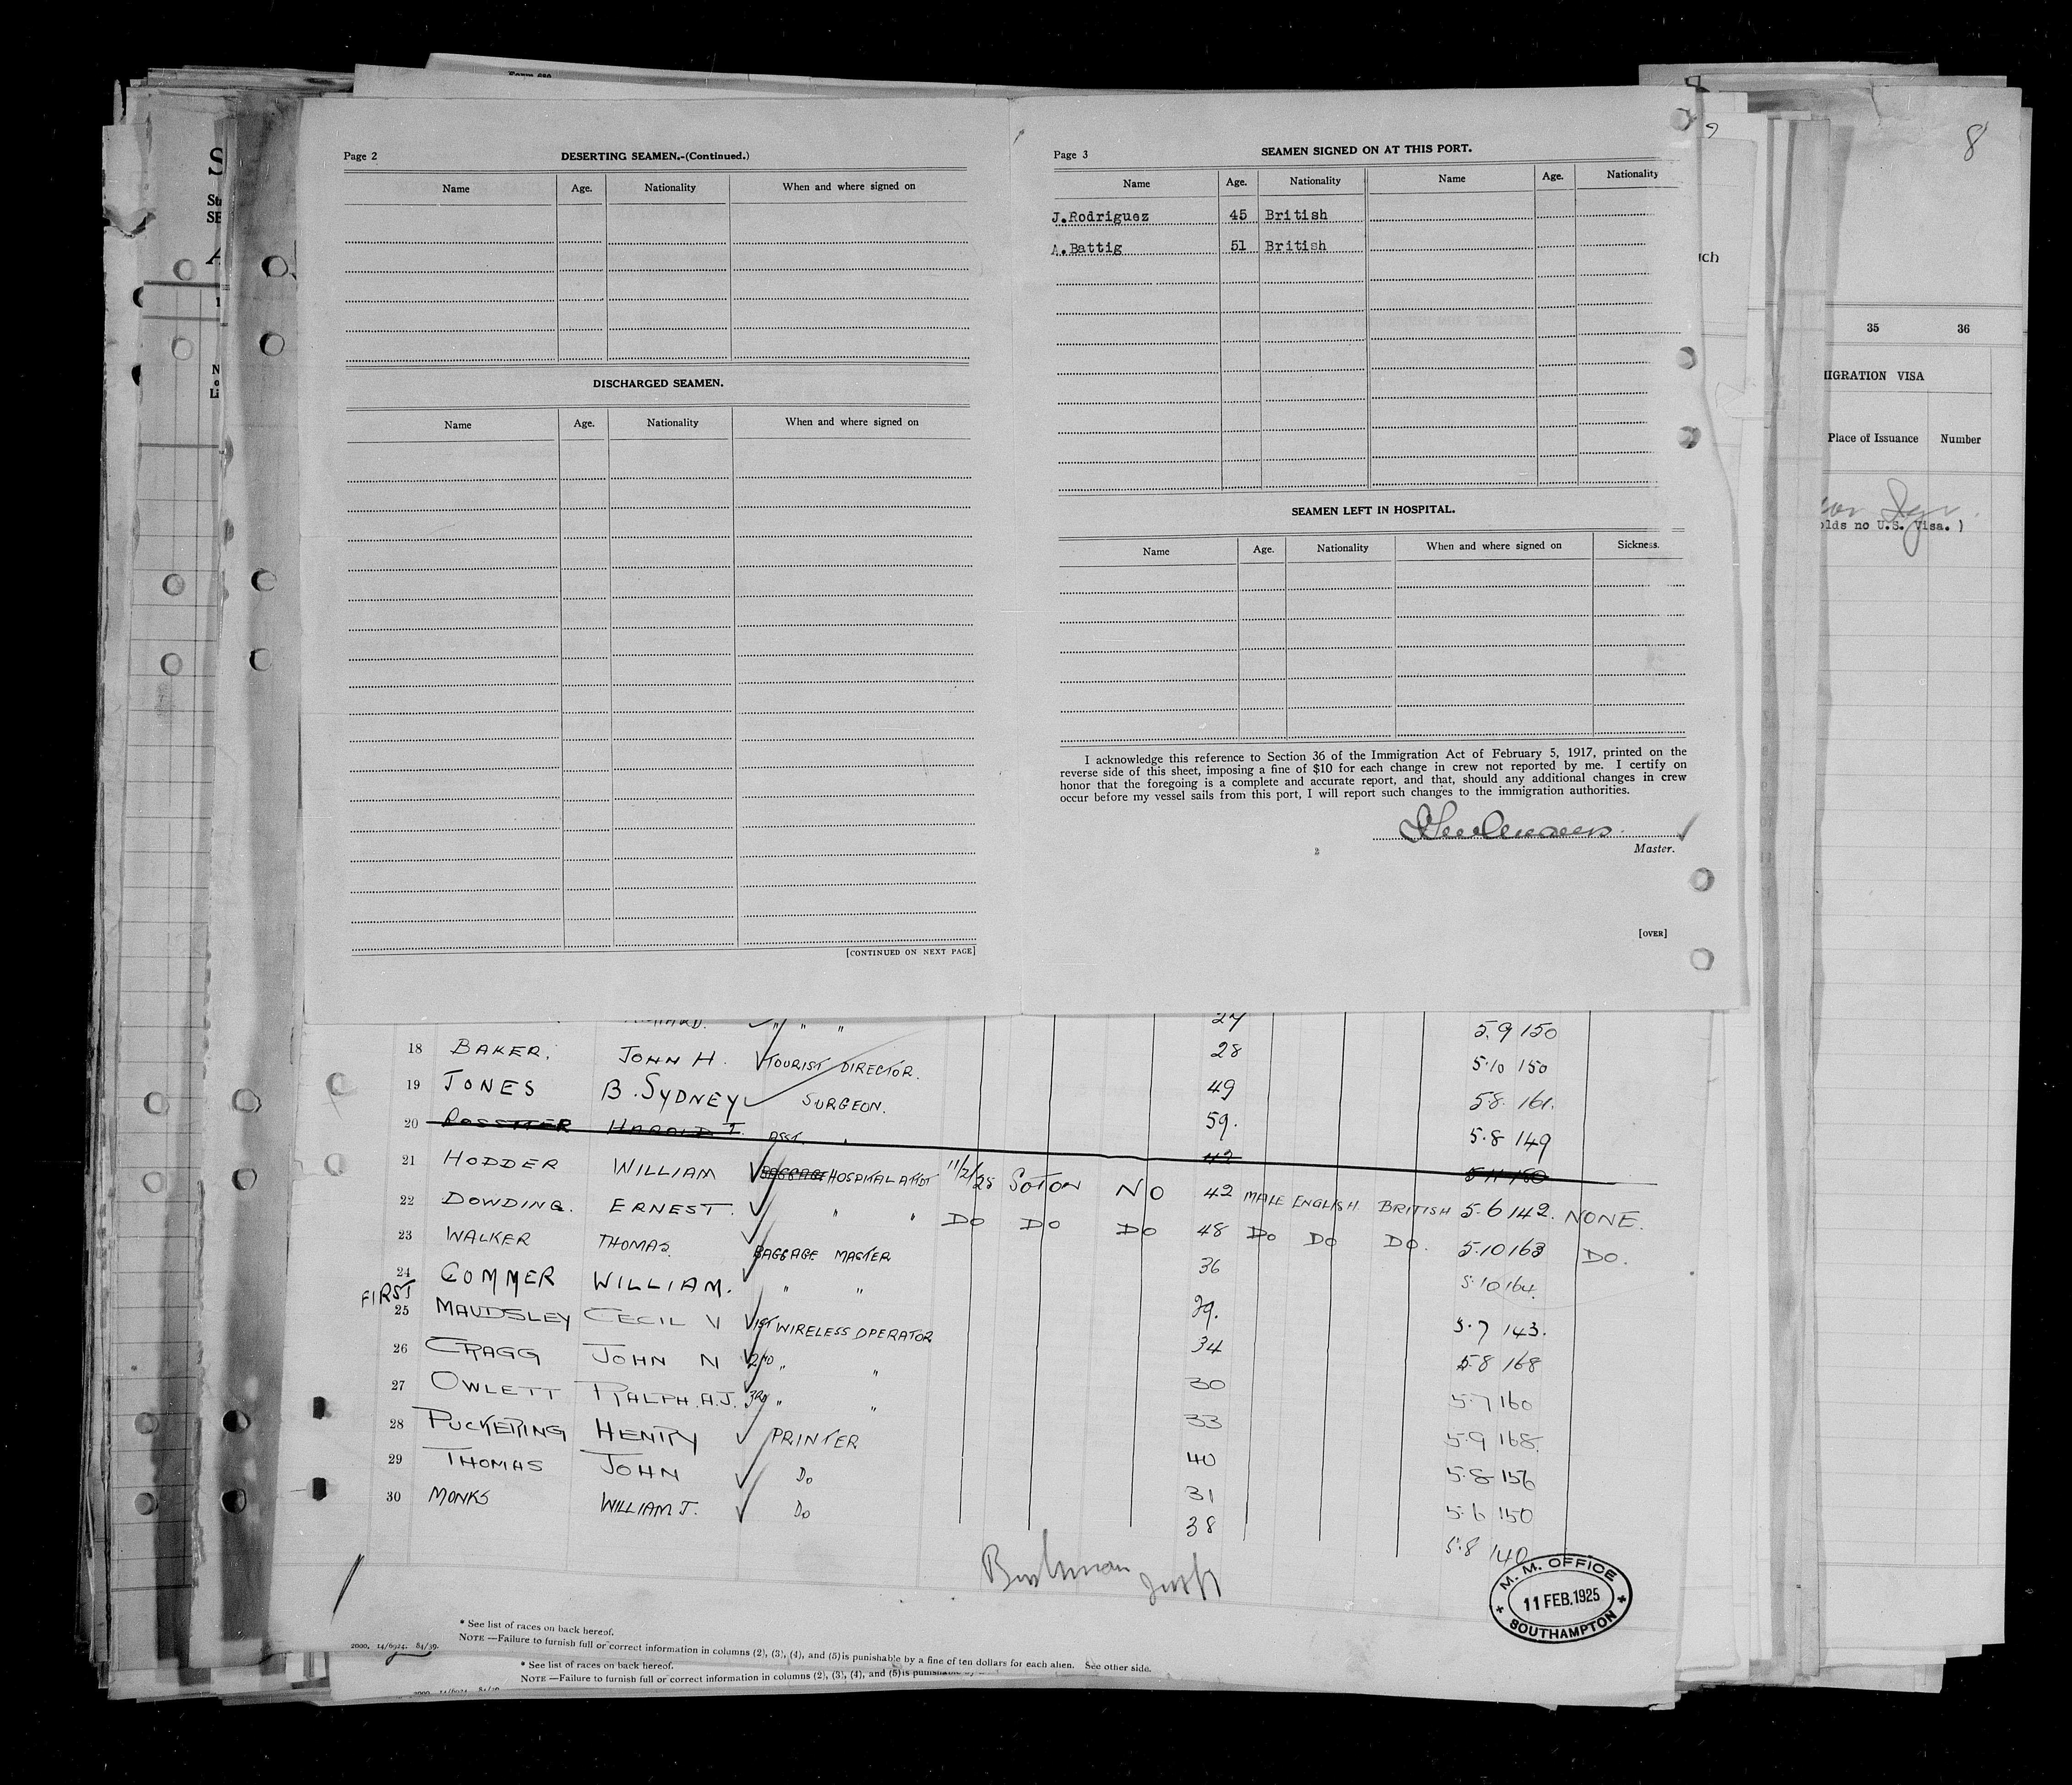 Page 2 DESERTING SEAMEN.-(Continued.)
Name Age. Nationality When and where signed on
DISCHARGED SEAMEN.
Name Age. Nationality When and where signed on
[CONTINUED ON NEXT PAGE]
Page 3 SEAMEN SIGNED ON AT THIS PORT.
Name Age. Nationality Name Age. Nationality
J.Rodriguez 45 British
A.Battig 51 British
SEAMEN LEFT IN HOSPITAL.
Name Age. Nationality When and where signed on Sickness.
I acknowledge this reference to Section 36 of the Immigration Act of February 5, 1917, printed on the
reverse side of this sheet, imposing a fine of $10 for each change in crew not reported by me. I certify on
honor that the foregoing is a complete and accurate report, and that, should any additional changes in crew
occur before my vessel sails from this port, I will report such changes to the immigration authorities.
Master.
[OVER]
8
35 36
IGRATION VISA
Place of Issuance Number
olds no U.S. Visa. )
" " " 27 5.9 150
18 BAKER. JOHN H. TOURIST DIRECTOR. 28 5.10 150
19 JONES B. SYDNEY SURGEON. 49 5.8. 161.
20 ROSSITER HAROLD I. ASST. " 59. 5.8 149
42 5.11 150
21 HODDER WILLIAM BAGGAGE HOSPITAL ATTDT 11/2/25 SOTON NO 42 MALE ENGLISH BRITISH 5.6 142. NONE.
22 DOWDING. ERNEST. " " DO DO DO 48 DO DO DO. 5.10 163 DO.
23 WALKER THOMAS. BAGGAGE MASTER 36 5.10 164.
24 GOMMER WILLIAM. " " 29. 5.7 143.
FIRST
25 MAUDSLEY CECIL V 1ST WIRELESS OPERATOR 34 5.8 168
26 CRAGG JOHN N 2ND " " 30 5.7 160
27 OWLETT RALPH.A.J. 3RD " " 33 5.9 168.
28 PUCKERING HENRY PRINTER 40 5.8 156
29 THOMAS JOHN DO 31 5.6 150
30 MONKS WILLIAM J. DO 38 5.8 140
M. M. OFFICE
11 FEB. 1925
SOUTHAMPTON
* See list of races on back hereof.
2000. 14/6924. 84/39. NOTE —Failure to furnish full or correct information in columns (2), (3), (4), and (5) is punishable by a fine of ten dollars for each alien. See other side.
* See list of races on back hereof.
NOTE —Failure to furnish full or correct information in columns (2), (3), (4), and (5) is